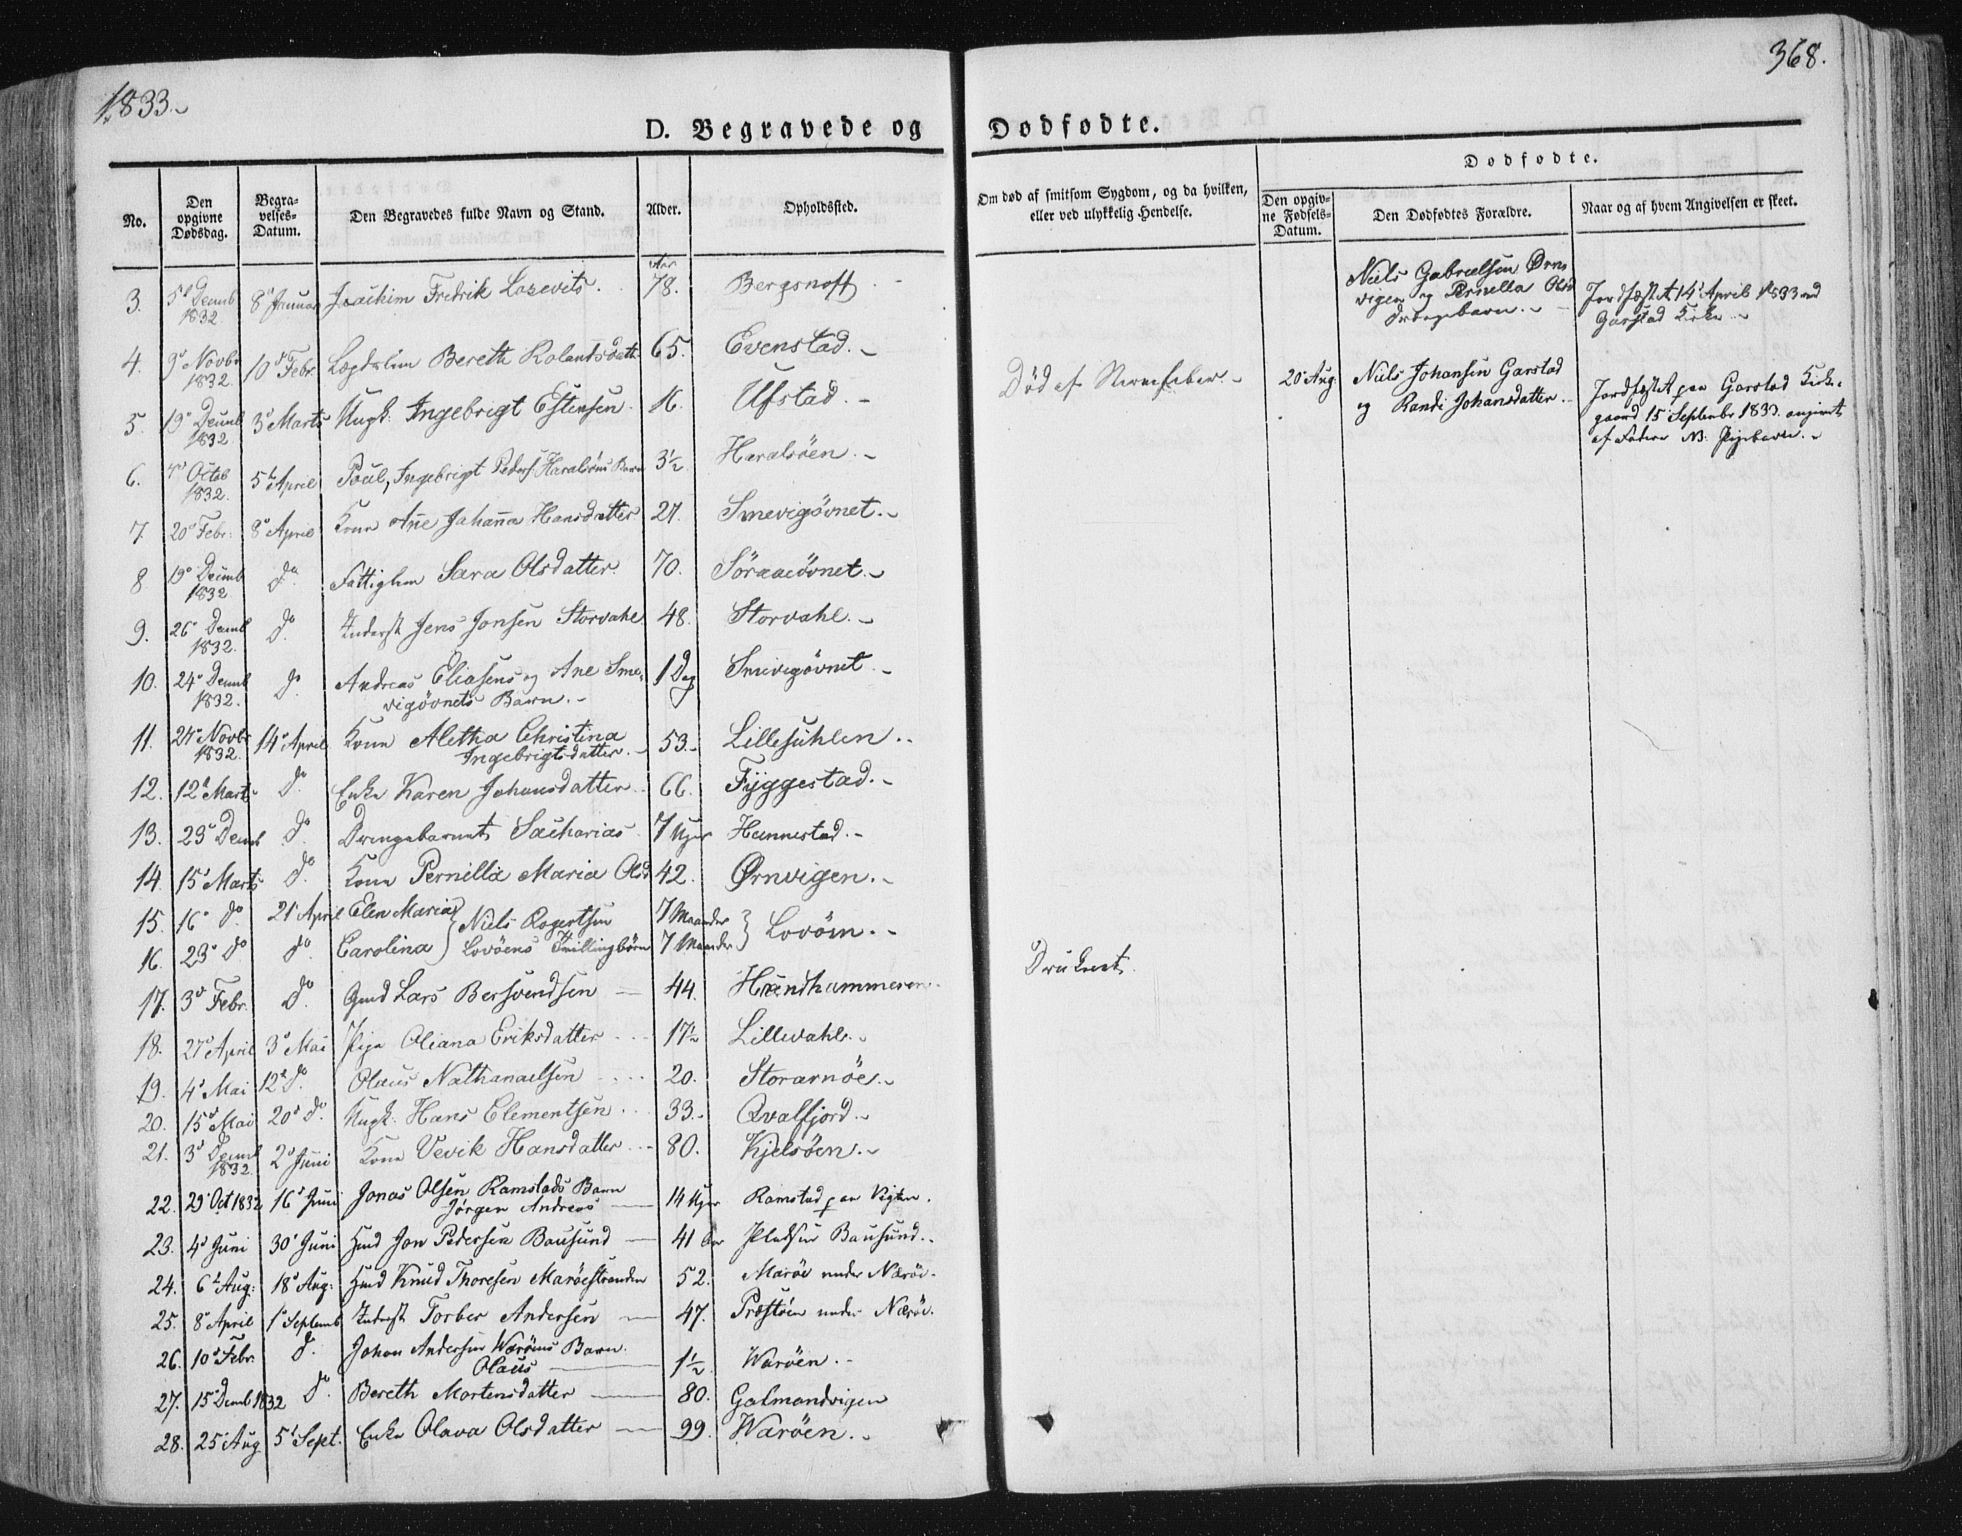 1833.
368.
D. Begravede og Dødfødte.
Dødfødte.
No.
Den opgivne Dødsdag.
Begravelses-Datum.
Den Begravedes fulde Navn og Stand.
Alder.
Opholdssted.
Om død af smitsom Sygdom, og da hvilken, eller ved ulykkelig Hendelse.
Den opgivne Fødsels-Datum.
Den Dødfødtes Forældre.
Naar og af hvem Angivelsen er skeet.
3. 5t Decemb 1832 8d Januar Joackim Fredrik Lozevits. Aar 78. Bergsnoff
Niels Gabrielsen Ørnvigen og Pernella Olsd Drengebarn.
Jordfæstet 14d April 1833 ved Garstad Kirke
4. 9d Novbr 1832 10d Febr. Lægdslem Bereth Rolandsdatt. 65. Evenstad.
5. 19d Decmb 1832 3d Marts Ungk. Ingebrigt Estensen. 16. Ufstad. Død af Nervefeber.
20 Aug. Niels Johansen Garstad og Randi Johansdatter.
Jordfæstet paa Garstad Kirkegaard 15 Septembr 1833. angivet af Faderen NB. Pigebarn.
6. 4d Octob 1832. 5t April Poul, Ingebrigt Peders. Haralsöens Barn 3½ Haralsöen.
7. 20d Febr. 8d April Kone Ane Johanna Hansdatter 27. Smevigövnet.
8 19d Decmb 1832 do Fattiglem Sara Olsdatter. 70. Söraaeövnet.
9. 26d Decmb 1832. do. Inderst Jens Jonsen Storvahl 48. Storvahl.
10. 24d Decmb 1832. do Andreas Eliasens og Ane Smevigövnets Barn. 1 Dag Smevigövnet
11. 27d Novbr 1832. 14d April Kone Aletha Christina Ingebrigtsdatter. 53. Lillesuhlen.
12. 12t Marts do Enke Karen Johansdatter. 66. Fyggestad.
13. 23d Decmb do Drengebarnet Sacharias 7 Uger Hunnestad.
14. 15d Marts do. Kone Pernilla Maria Olsd. 42. Ørnvigen.
15. 16d do 21 April Elen Maria } Niels Rogertsen 7 Maander } Lovöen.
16. 23d do do. Carolina } Lovöens Tvillingbörn 7 Maander
17. 3d Febr. do. Gmd Lars Bersvendsen 44. Hundhammeren. Druknet.
18. 27d April 3d Mai Pige Oliana Eriksdatter 17½ Lillevahl.
19. 4d Mai 12t do. Olaus Nathanaelsen 20. Storarnöe.
20. 15d Mai 20d do. Ungk. Hans Clementsen. 33. Qvalfjord.
21. 3d Decmb 1832. 2d Juni Kone Vevik Hansdatter 80. Kjelsöen.
22. 29d Oct 1832 16d Juni Jonas Olsen Ramstads Barn Jørgen Andreas 14 Uger Ramstad paa Vigten.
23. 4d Juni 30d Juni Hmd Jon Pedersen Bousund 41 Aar Pladsen Bausund.
24. 6t Aug: 18d Aug: Hmd Knud Thoresen Maröestranden 52. Maröe under Næröe.
25. 8d April 1d Septemb Inderst Torber Andersen 47. Præstöen under Næröe.
26. 10d Febr. do. Johan Andersen Waröens Barn. Olaus 1½. Waröen.
27. 15d Decmb 1832 do. Bereth Mortensdatter 80. Galmandvigen
28. 25 Aug 5t Sept. Enke Olava Olsdatter 99. Waröen.